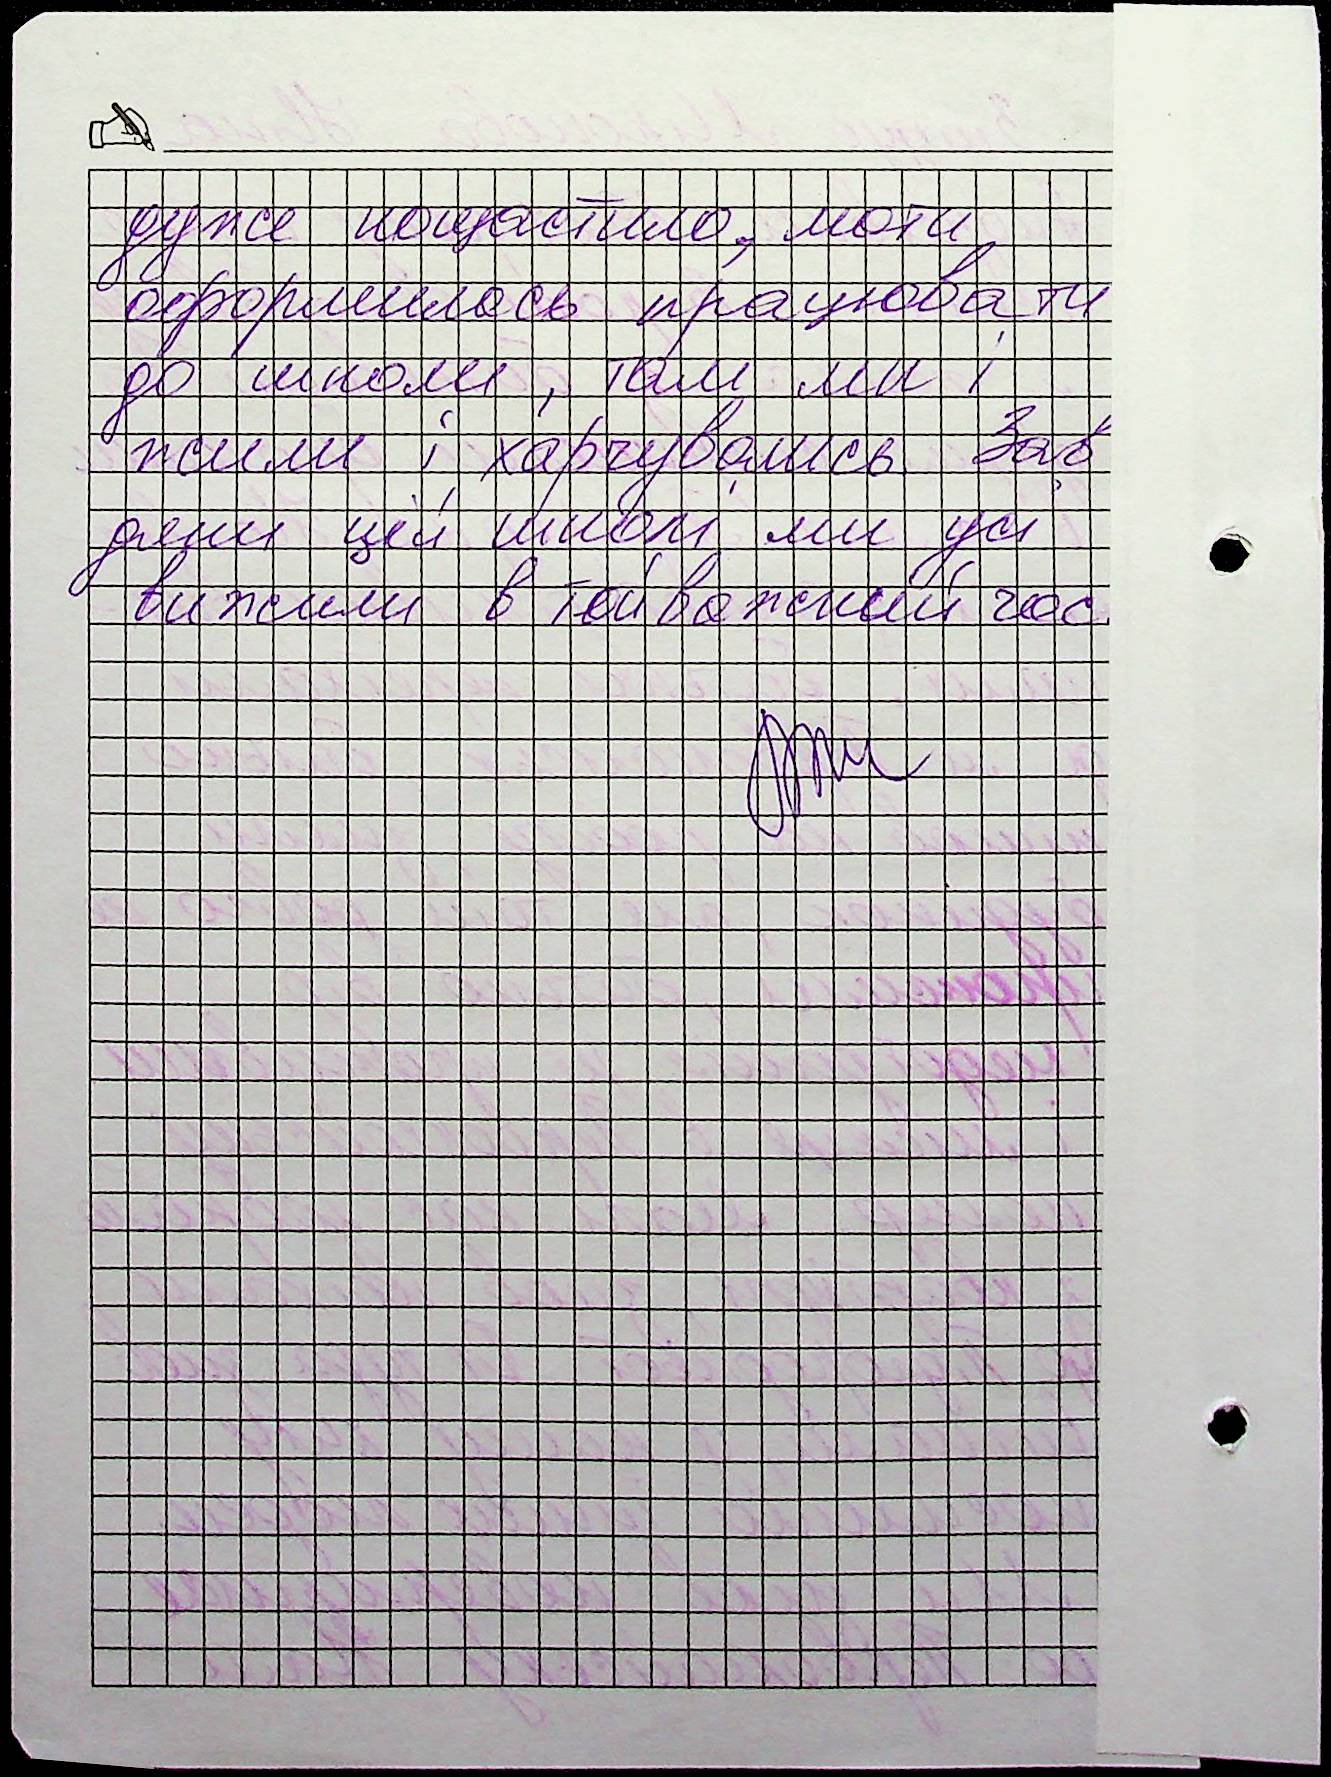 дуже пощастило, мати
оформилась працювати
до школи, там ми і
жили і харчувались Зав
дяки цій школі ми усі
вижили в той важкий час